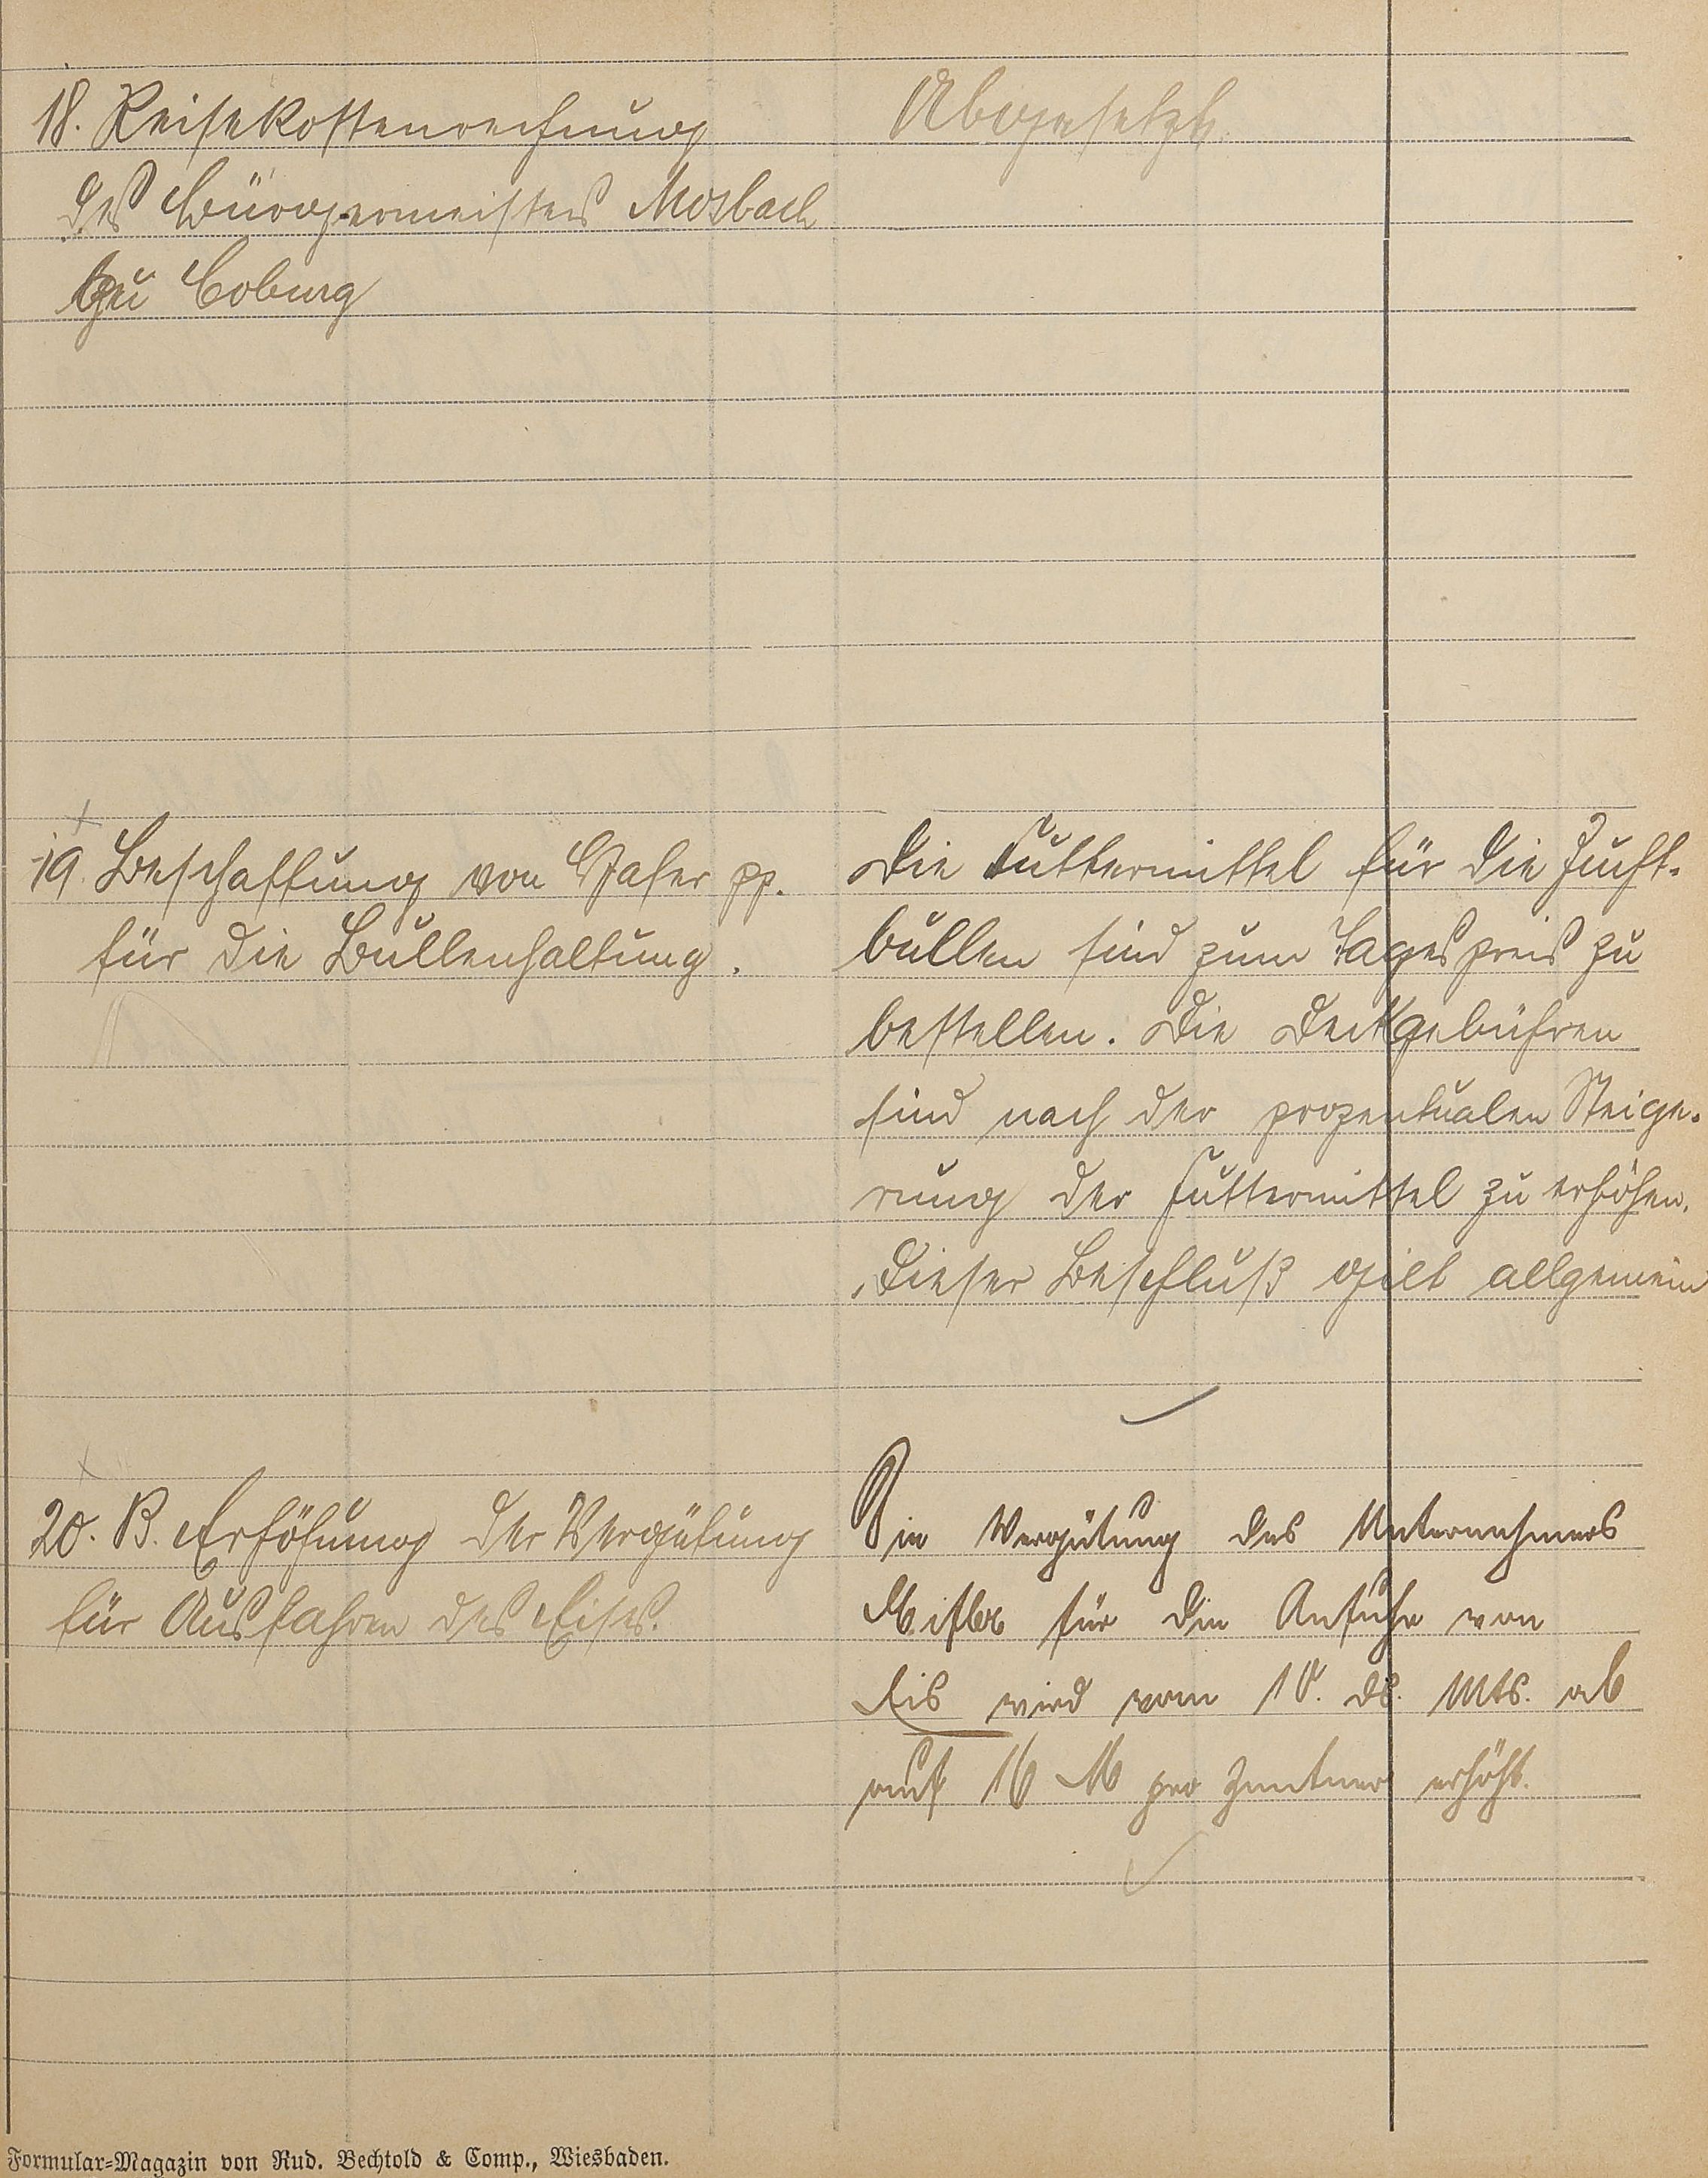 18. Reisekostenrechnung
des Bürgermeisters Mosbach
zu Coburg
Abgesetzt.
19. Beschaffung von Hafer pp.
für die Bullenhaltung.
Die Futtermittel für die Zucht-
bullen sind zum Tagespreis zu
bestellen. Die Deckgebühren
sind nach der prozentualen Steige-
rung der Futtermittel zu erhöhen.
Dieser Beschluß gilt allgemein
20. B. Erhöhung der Vergütung
für Ausfahren des Eises.
Die Vergütung des Unternehmers
für die Anfuhr von
Eis wird vom 10. ds. Mts. ab
auf 16 M pro Zentner erhöht.
Formular-Magazin von Rud. Bechtold & Comp., Wiesbaden.